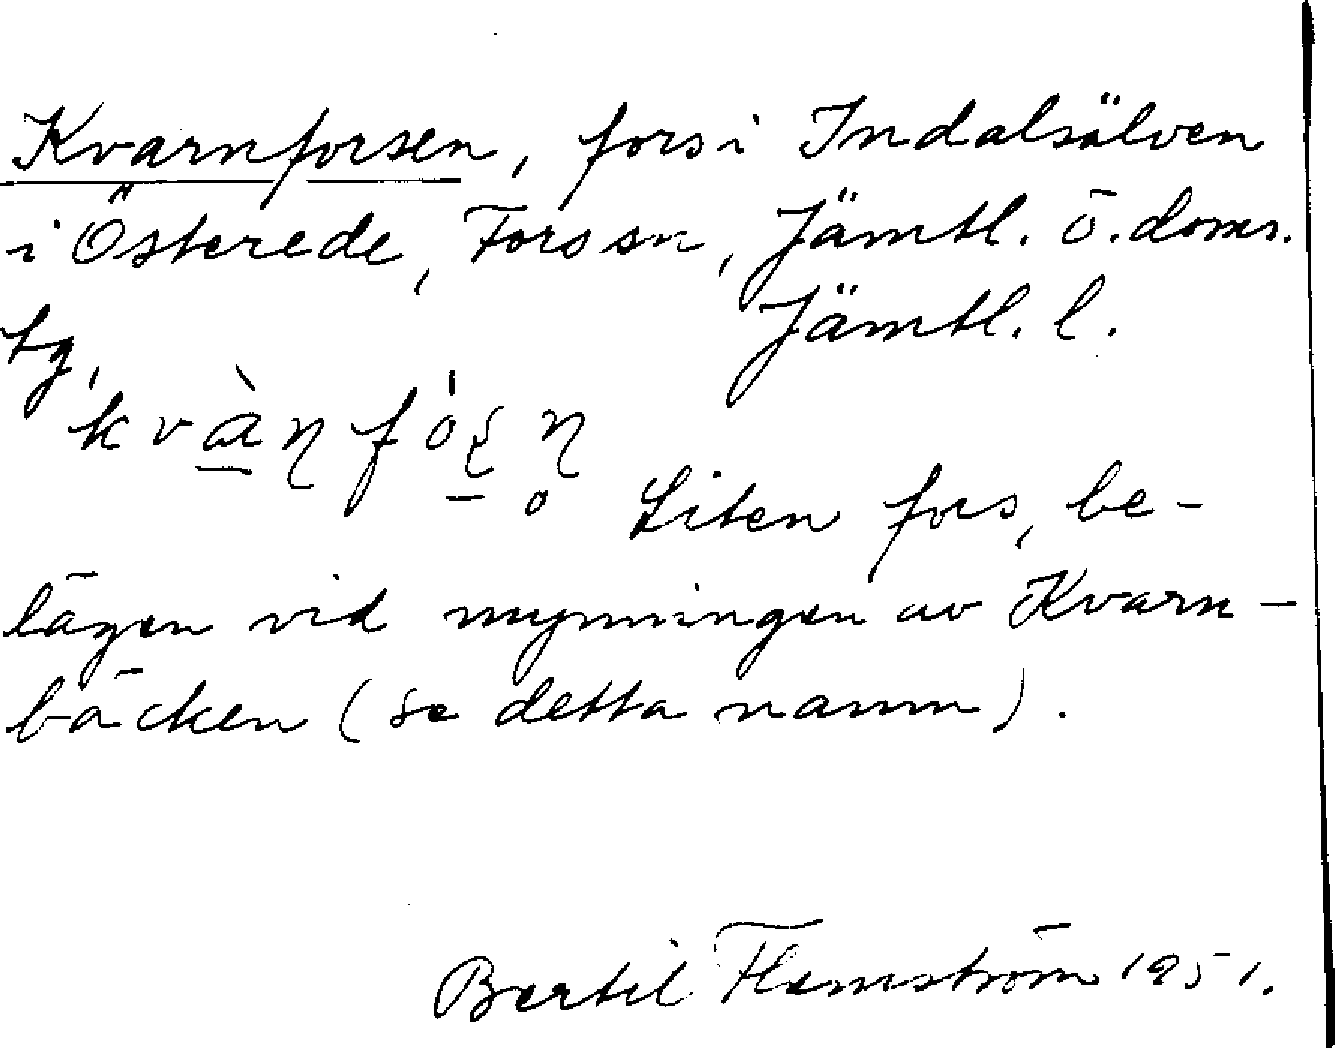 Kvarnforsen, fors i Indalsälven
i Österede, Fors sn, Jämtl. ö. doms.
tg, Jämtl. l.
Liten fors, be-
lägen vid mynningen av Kvarn-
bäcken (se detta namn).
Bertil Flemström 1951.